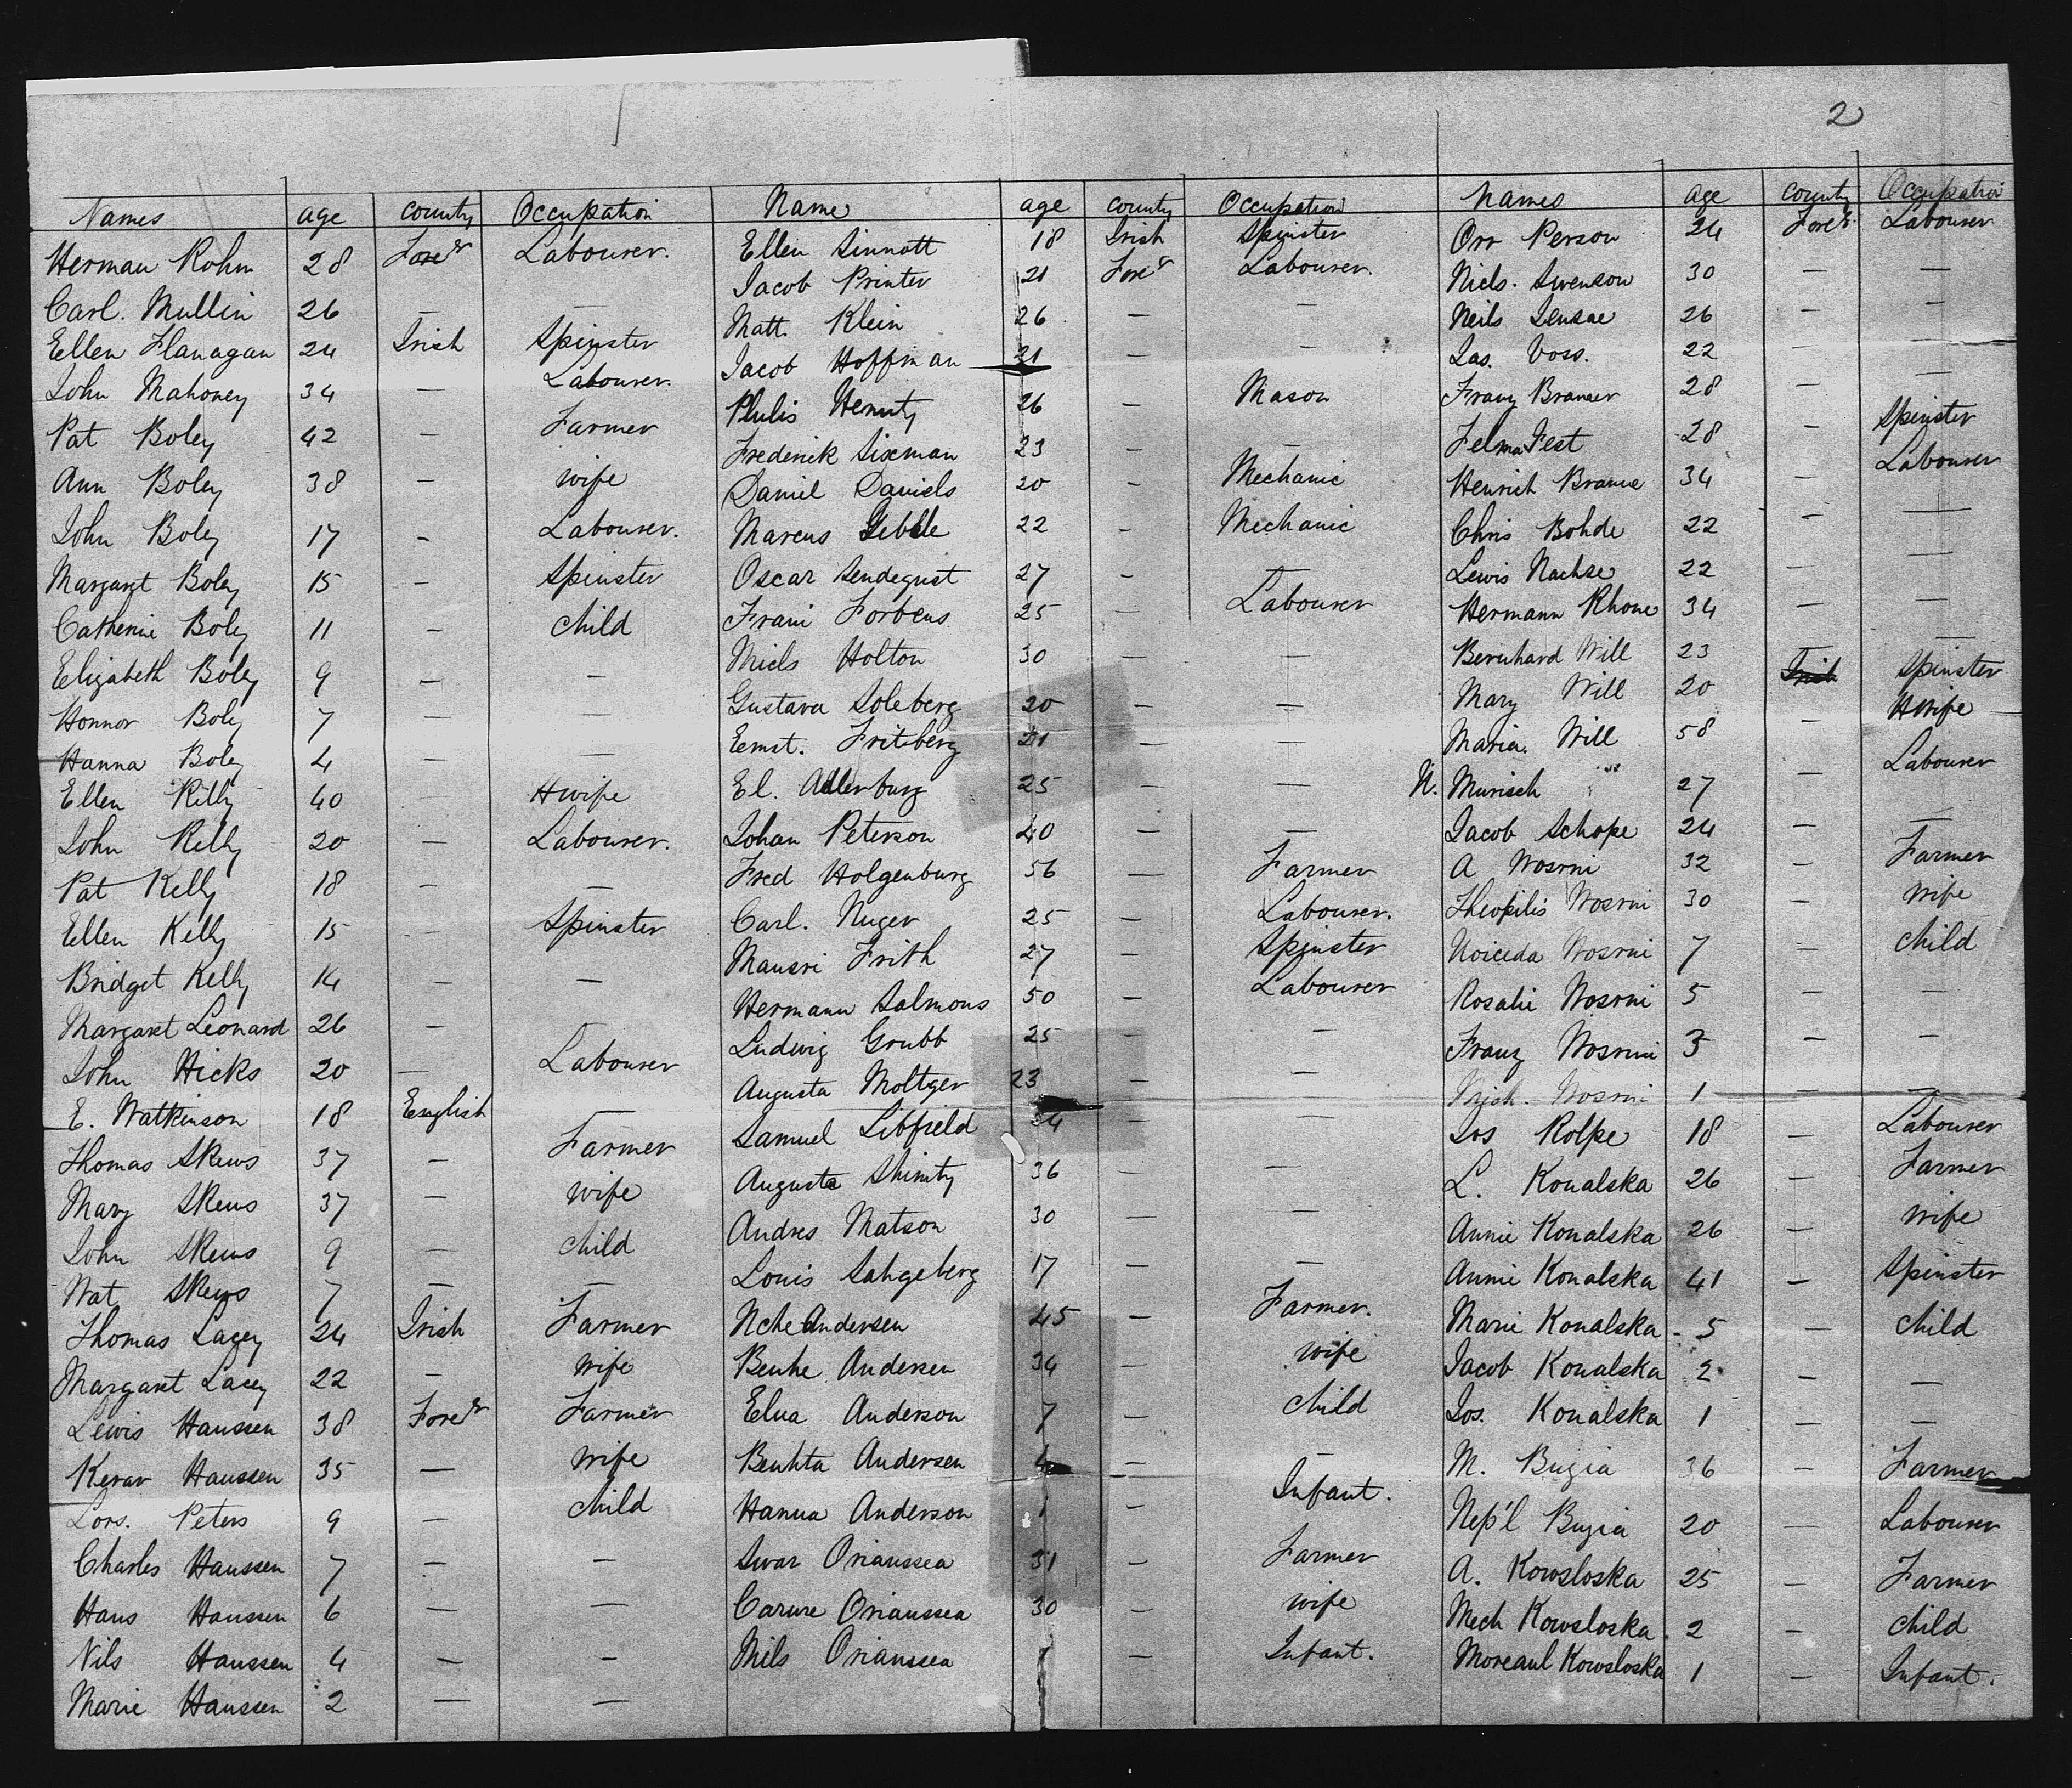 2
Names age county Occupation
Herman Rohm 28 Fore^r Labourer.
Carl. Mullin 26 — —
Ellen Flanagan 24 Irish Spinster
John Mahoney 34 — Labourer.
Pat Boley 42 — Farmer
Ann Boley 38 — wife
John Boley 17 - Labourer.
Margaret Boley 15 - Spinster
Catherine Boley 11 - child
Elizabeth Boley 9 - -
Honnor Boley 7 - —
Hanna Boley 4 — —
Ellen Killy 40 — Hwife
John Killy 20 — Labourer.
Pat Kelly 18 - —
Ellen Kelly 15 - Spinster
Bridget Kelly 14 - —
Margaret Leonard 26 -
John Hicks 20 — Labourer
E. Watkinson 18 English —
Thomas Skews 37 — Farmer
Mary Skews 37 — wife
John Skews 9 — child
Wat Skews 7 — —
Thomas Lacey 24 Irish Farmer
Margaret Lacey 22 — wife
Lewis Haussen 38 Fore^r Farmer
Kerar Haussen 35 — wife
Lors. Peters 9 — child
Charles Haussen 7 — -
Haus Haussen 6 — —
Nils Haussen 4 — -
Marie Haussen 2 — —
Name age county Occupation
Ellen Sinnott 18 Irish Spinster
Jacob Printer 21 Fore^r Labourer.
Matt. Klein 26 — —
Jacob Hoffman 21 — -
Phulis Hemuty 26 — Mason
Frederick Sixeman 23 - —
Daniel Daniels 20 - Mechanic
Marcus Gebble 22 - Mechanic
Oscar Sendeqvist 27 - —
Frani Forbeus 25 — Labourer
Miels Holton 30 — —
Gustava Soleberg 20 — —
Eemst. Fritzberg 21 — —
El. Adlerburg 25 — —
Johan Peterson 40 — —
Fred Holgenburg 56 — Farmer
Carl. Nuger 25 — Labourer.
Mausri Frith 27 - Spinster
Hermann Salmons 50 - Labourer
Ludwig Grubb 25 - —
Augusta Moltger 23 — —
Samuel Libffield 34 —
Augusta Shimty 36 — —
Andres Matson 30 — —
Louis Sahgeberg 17 — —
Nche Andersen 45 — Farmer.
Benhe Andersen 34 — wife
Elua Anderson 7 — child
Benhta Andersen 4 — —
Hanna Anderson 1 - Infant.
Swar Oriaussea 31 — Farmer
Carure Oriaussea 30 — wife
Mils Oriaussea — Infant.
Names age county Occupation
Orr Person 24 Fore^r Labourer
Niels. Swenson 30 — —
Neils Sensae 26 — —
Jas. Voss. 22 — —
Franz Branser 28 — —
Felma Fest 28 — Spinster
Henrich Brame 34 — Labourer
Chris Bohde 22 — —
Lewis Nachse 22 — —
Hermann Rhone 34 — —
Bernhard Will 23 — —
Mary Will 20 Irish Spinster
Maria. Will 58 — Hwife
N. Murisch 27 — Labourer
Jacob Schope 24 — —
A Wosrni 32 - Farmer
Theopilis Wosrni 30 - wife
Uoiceda Wosrni 7 — child
Rosalie Wosrni 5 — —
Franz Wosrni 3 — —
Wosrni 1 — —
Jos Kolpe 18 — Labourer
L. Konalska 26 — Farmer
Annie Konalska 26 — wife
Annie Konalska 41 — Spinster
Marie Konalska 5 — child
Jacob Konalska 2 — —
Jos. Konalska 1 — —
M. Bugia 36 — Farmer
Nep'l Bugia 20 — Labourer
A. Kowsloska 25 — Farmer
Mech Kowsloska 2 — child
Moreaul Kowsloska 1 — Infant.